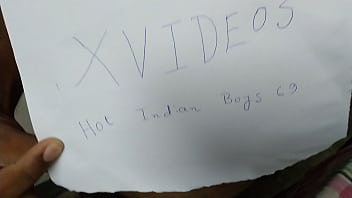 XVIDEOS
Hot Indian Boys 69